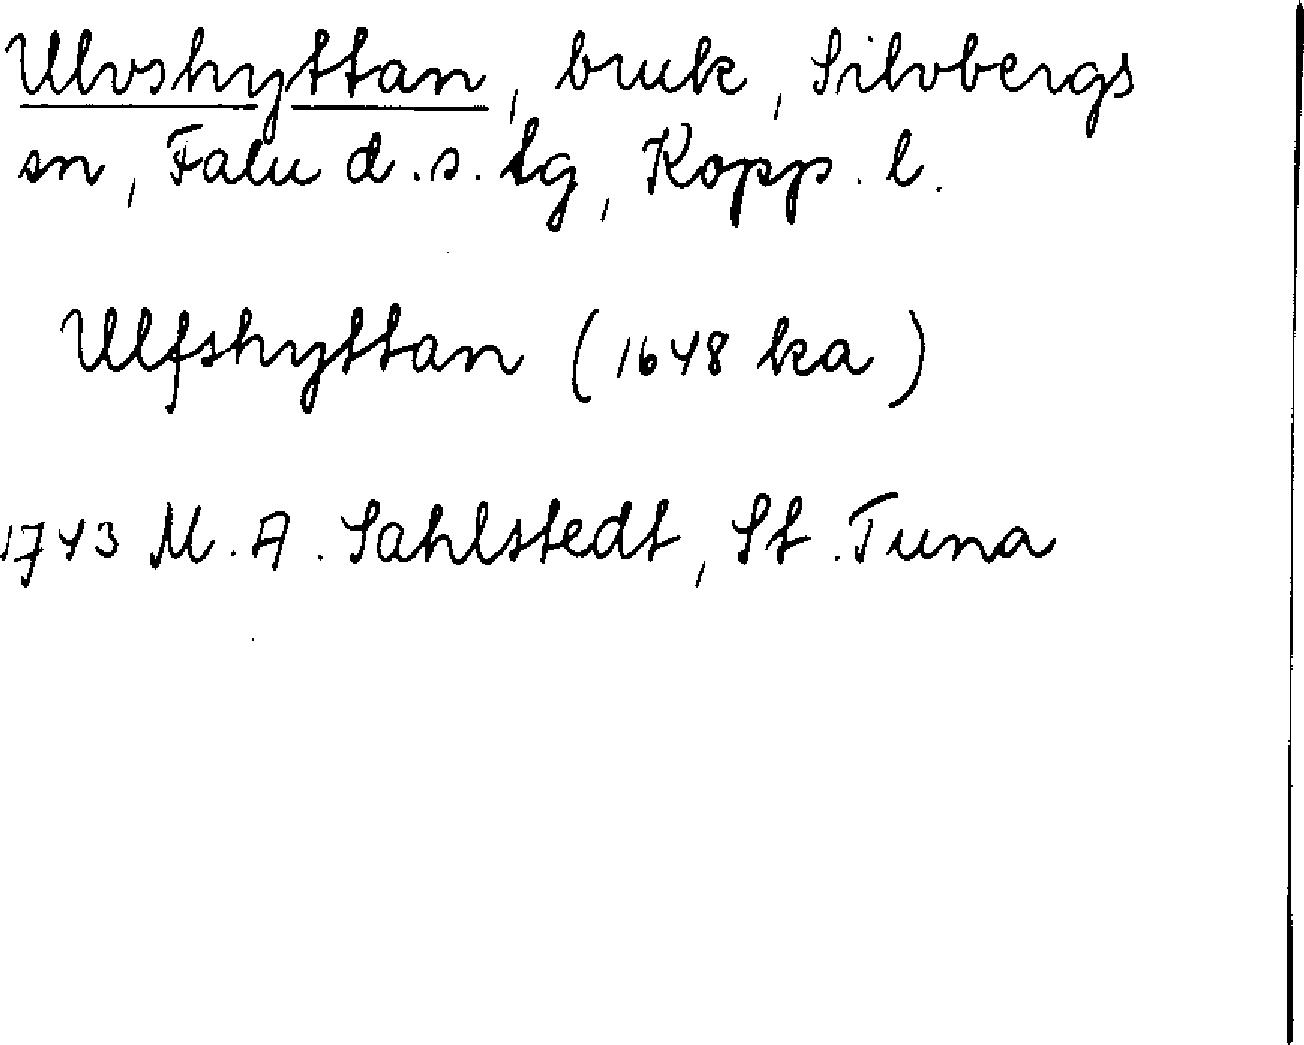 Ulvshyttan, bruk, Silvbergs
sn, Falu d.s. tg, Kopp. l.
Ulfshyttan (1648 ka)
1743 M. A. Sahlstedt, St. Tuna